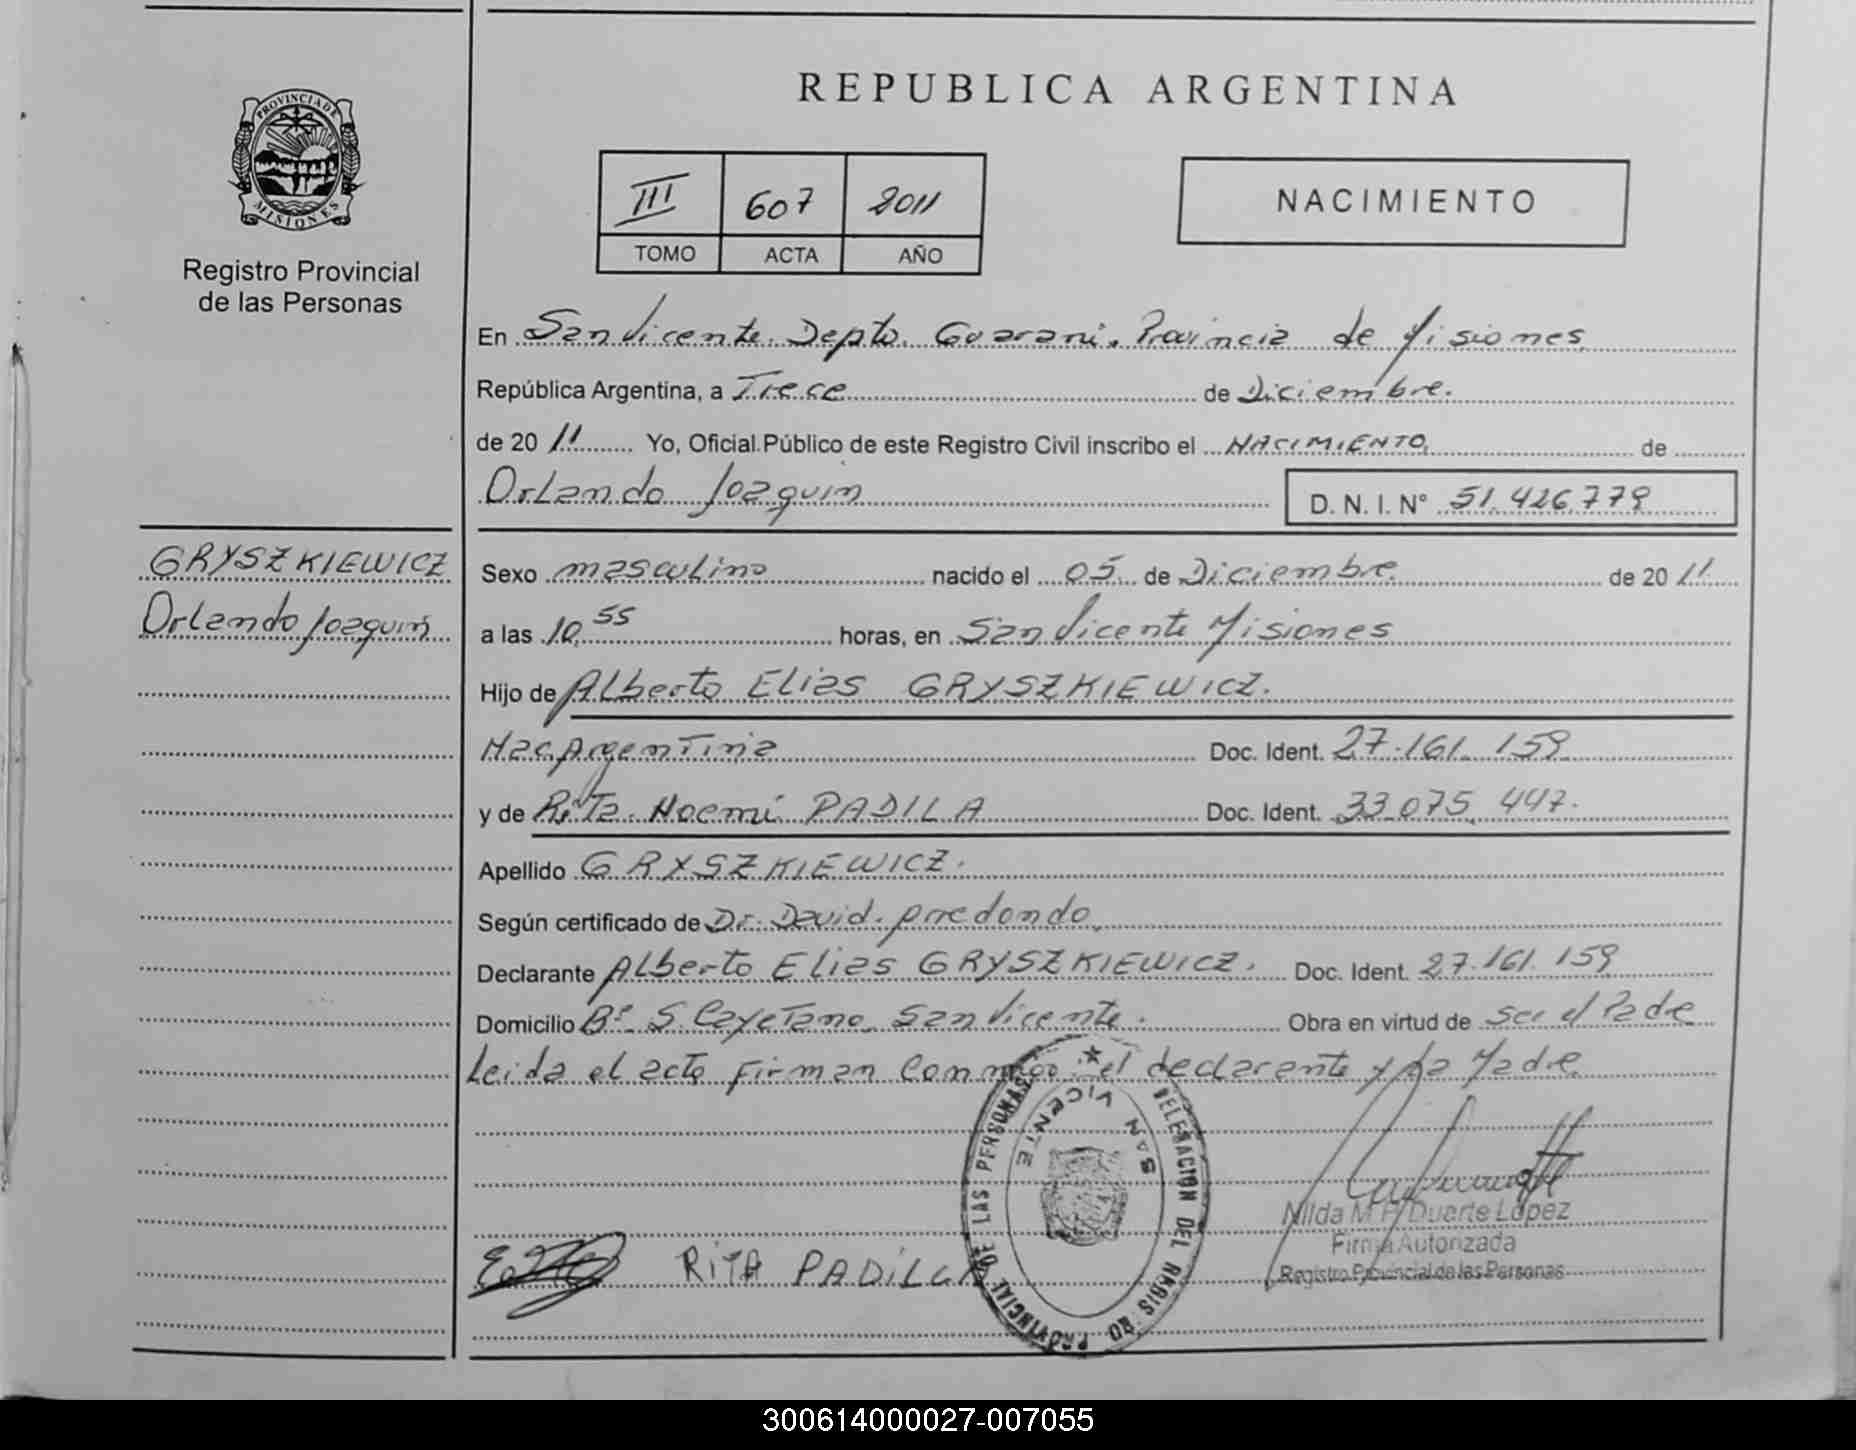 REPUBLICA ARGENTINA
PROVINCIA DE MISIONES
Registro Provincial
de las Personas
III 607 2011
TOMO ACTA AÑO
NACIMIENTO
En San Vicente. Depto. Guarani. Provincia de Misiones
República Argentina, a Trece de Diciembre.
de 20 11 Yo, Oficial Público de este Registro Civil inscribo el NACIMIENTO de
Orlando Joaquin D. N. I. N° 51.426.779
GRYSZKIEWICZ
Orlando Joaquin
Sexo masculino nacido el 05 de Diciembre de 20 11
a las 10,55 horas, en San Vicente Misiones
Hijo de Alberto Elias GRYSZKIEWICZ.
Nac. Argentina Doc. Ident. 27.161.159
y de Rita Noemi PADILA Doc. Ident. 33.075.447.
Apellido GRYSZKIEWICZ.
Según certificado de Dr. David Arredondo
Declarante Alberto Elias GRYSZKIEWICZ. Doc. Ident. 27.161.159
Domicilio B° S. Cayetano San Vicente. Obra en virtud de ser el Padre
Leida el acta Firman Conmigo el declarante y La Madre
RITA PADILLA
DELEGACION DEL REGISTRO PROVINCIAL DE LAS PERSONAS
SAN VICENTE
Nilda M F Duarte López
Firma Autorizada
Registro Provincial de las Personas
300614000027-007055